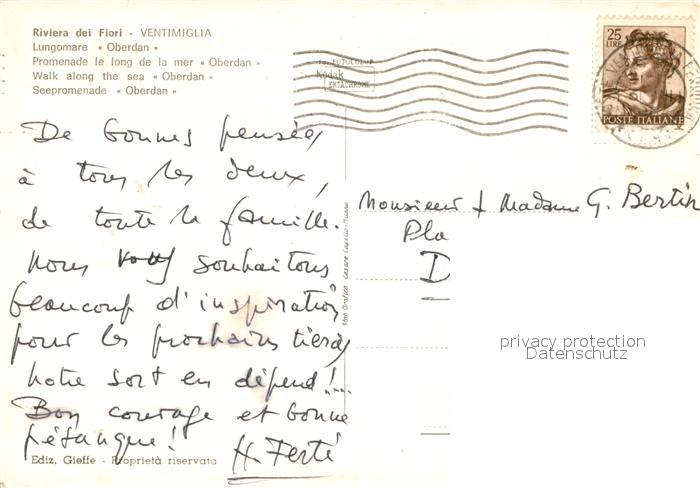 Riviera dei Fiori - VENTIMIGLIA
Lungomare « Oberdan »
Promenade le long de la mer « Oberdan »
Walk along the sea « Oberdan »
Seepromenade « Oberdan »
FOTOCOLOR
Kodak
EKTACHROME
25
LIRE
POSTE ITALIANE
De bonnes pensées
à tous les deux,
de toute la famille.
Nous vous souhaitons
beaucoup d'inspiration
pour les prochains tiercés
notre sort en dépend!...
Bon courage et bonne
pétanque!
H. Ferté
Monsieur + Madame G. Bertin
Pla
D
privacy protection
Datenschutz
Ediz. Gieffe - Proprietà riservata